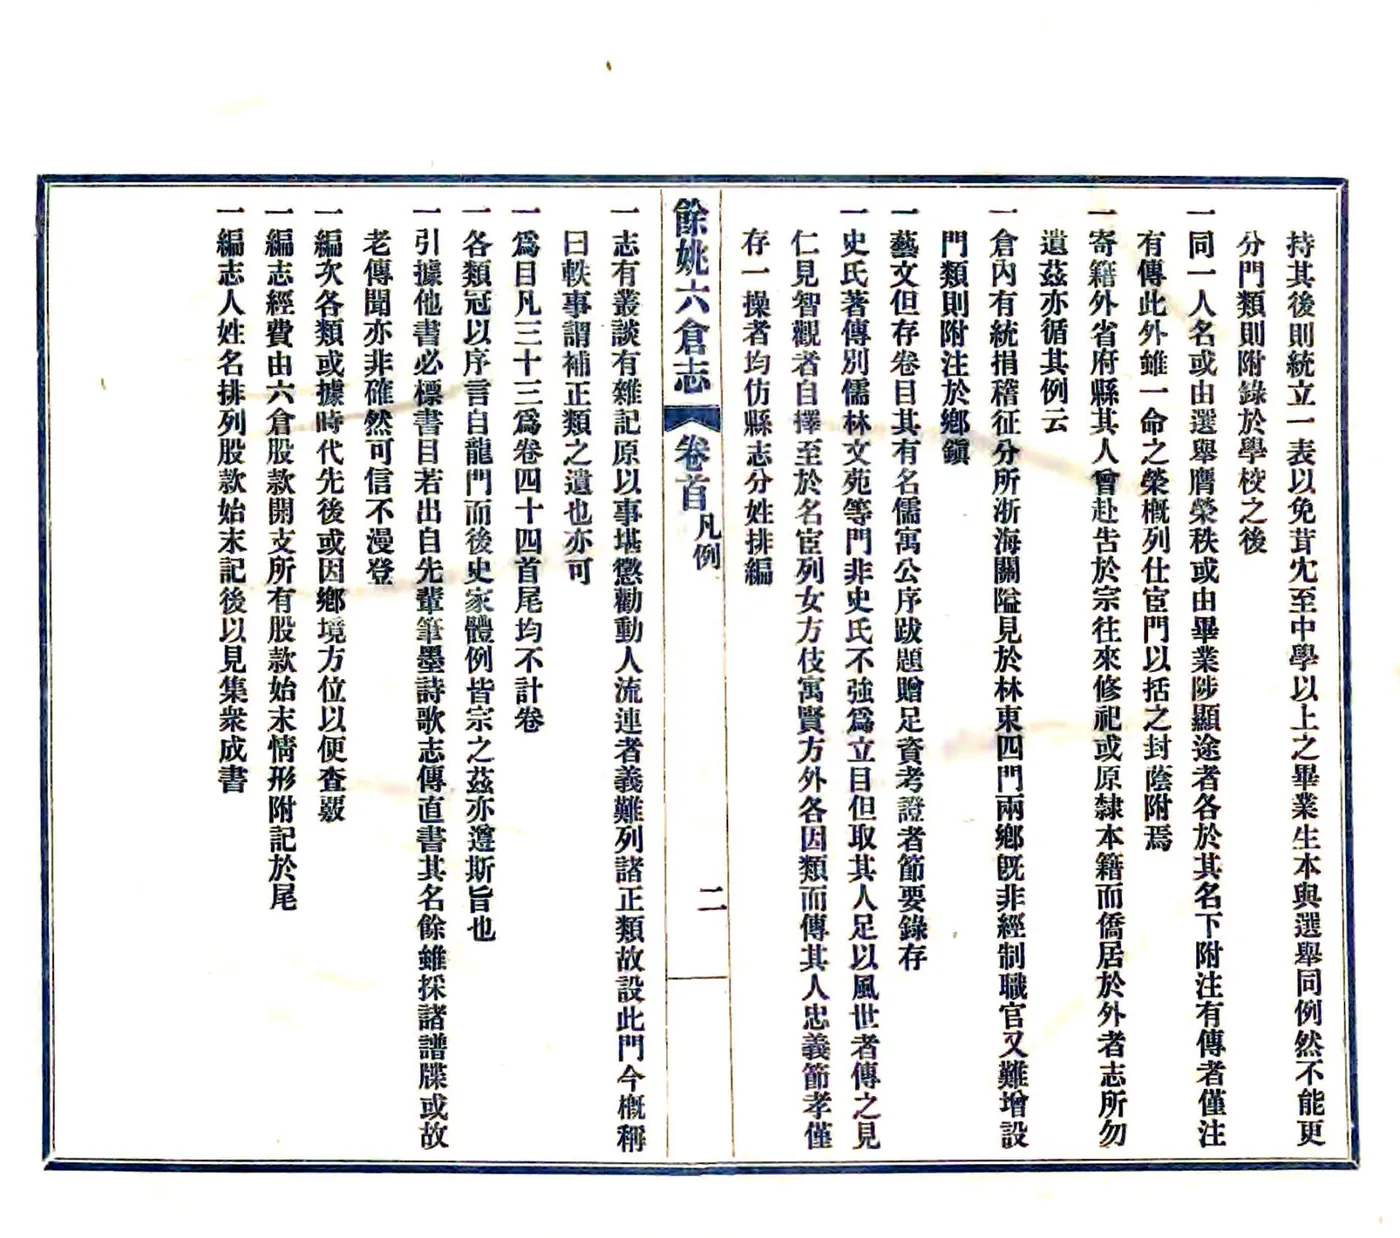 持其後則統立一表以免茸冗至中學以上之畢業生本與選舉同例然不能更
分門類則附錄於學校之後
一同一人名或由選舉膺榮秩或由畢業陟顯途者各於其名下附注有傳者僅注
有傳此外雖一命之榮槪列仕宦門以括之封蔭附焉
一寄籍外省府縣其人曾赴告於宗往來修祀或原隸本籍而僑居於外者志所勿
遺茲亦循其例云
一倉內有統捐稽征分所浙海關隘見於林東四門兩鄉旣非經制職官又難增設
門類則附注於鄉鎭
一藝文但存卷目其有名儒寓公序跋題贈足資考證者節要錄存
一史氏著傳別儒林文苑等門非史氏不強爲立目但取其人足以風世者傳之見
仁見智觀者自擇至於名宦列女方伎寓賢方外各因類而傳其人忠義節孝僅
存一操者均仿縣志分姓排編
餘姚六倉志
卷首
凡例
二
一志有叢談有雜記原以事堪懲勸動人流連者義難列諸正類故設此門今槪稱
曰軼事謂補正類之遺也亦可
一爲目凡三十三爲卷四十四首尾均不計卷
一各類冠以序言自龍門而後史家體例皆宗之茲亦遵斯旨也
一引據他書必標書目若出自先輩筆墨詩歌志傳直書其名餘雖採諸譜牒或故
老傳聞亦非確然可信不漫登
一編次各類或據時代先後或因鄉境方位以便查覈
一編志經費由六倉股款開支所有股款始末情形附記於尾
一編志人姓名排列股款始末記後以見集衆成書